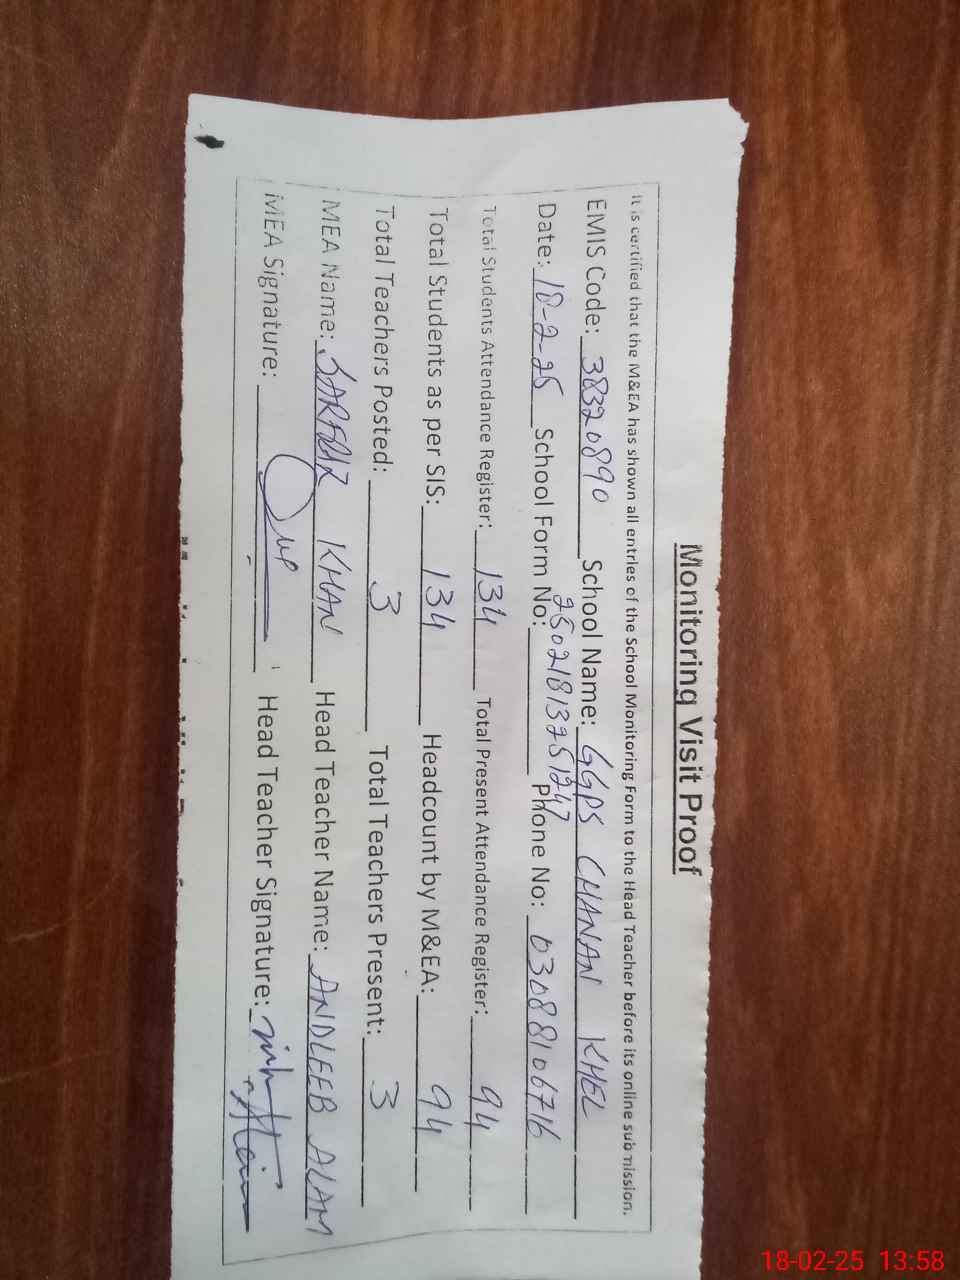 Monitoring Visit Proof
It is certified that the M&EA has shown all entries of the School Monitoring Form to the Head Teacher before its online submission.
EMIS Code: 38320890 School Name: GGPS CHANAN KHEL
Date: 18-2-25 School Form No: 25021813251247 Phone No: 03088106716
Total Students Attendance Register: 134 Total Present Attendance Register: 94
Total Students as per SIS: 134 Headcount by M&EA: 94
Total Teachers Posted: 3 Total Teachers Present: 3
MEA Name: SARFRAZ KHAN Head Teacher Name: ANDLEEB ALAM
MEA Signature: Head Teacher Signature:
18-02-25 13:58